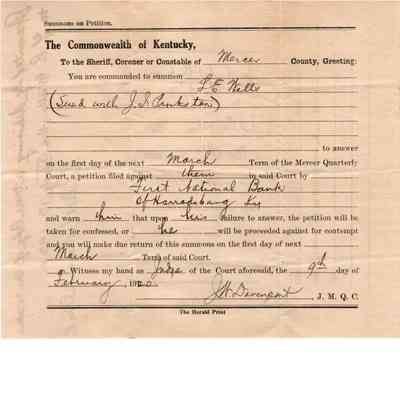 Summons on Petition.
The Commonwealth of Kentucky,
To the Sheriff, Coroner or Constable of Mercer County, Greeting:
You are commanded to summon L E Wells
(Sued with J. S. Pinkston)
to answer
on the first day of the next March Term of the Mercer Quarterly
Court, a petition filed against them in said Court by
First National Bank
Of Harrodsburg Ky
and warn him that upon his failure to answer, the petition will be
taken for confessed, or he will be proceeded against for contempt
and you will make due return of this summons on the first day of next
March Term of said Court.
Witness my hand as Judge of the Court aforesaid, the 9th day of
February, 1920.
J W Davenport, J. M. Q. C.
The Herald Print